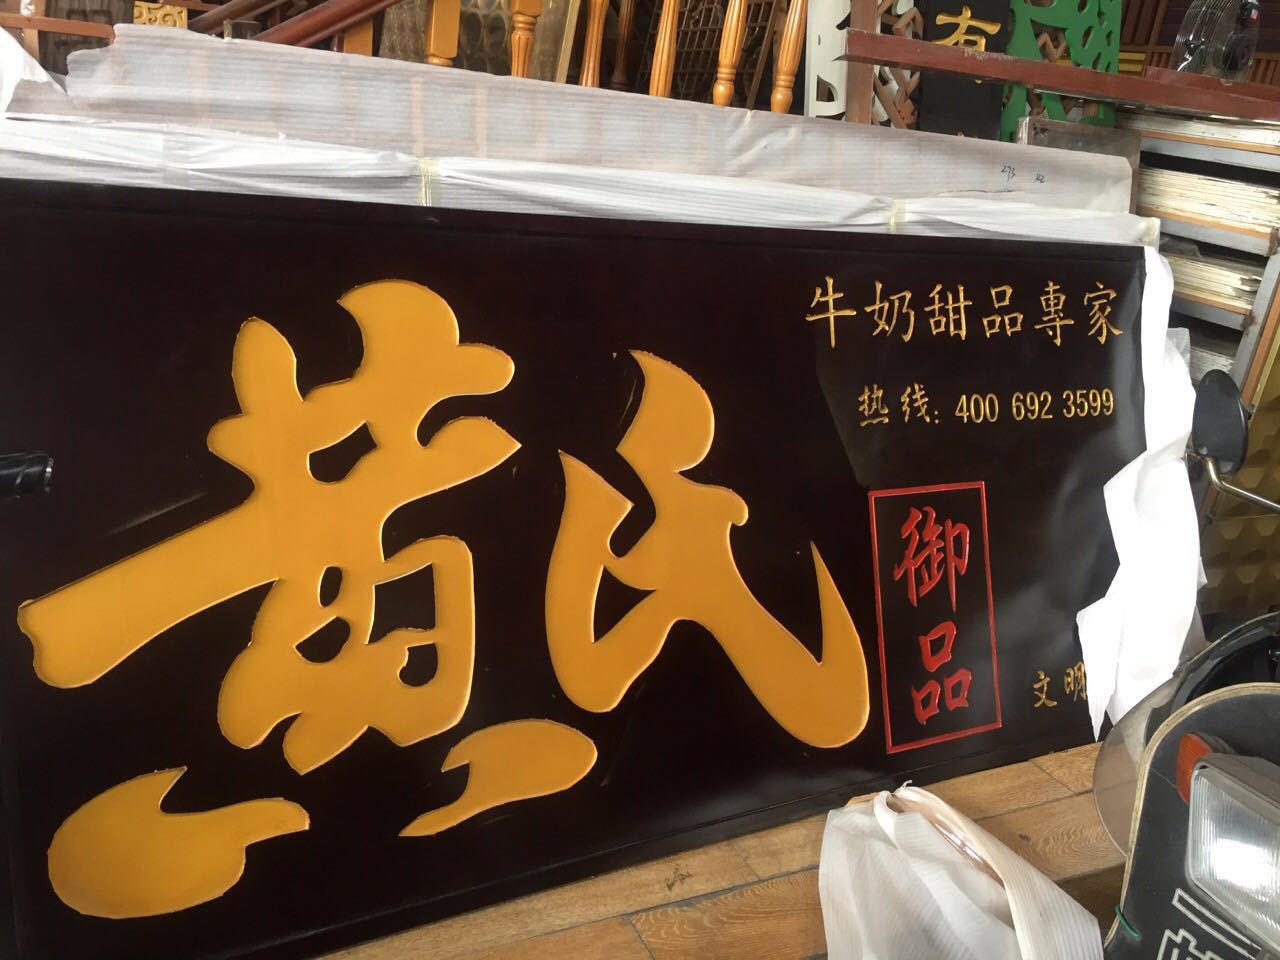 黄氏
牛奶甜品專家
热线: 400 692 3599
御品
文明
有
273